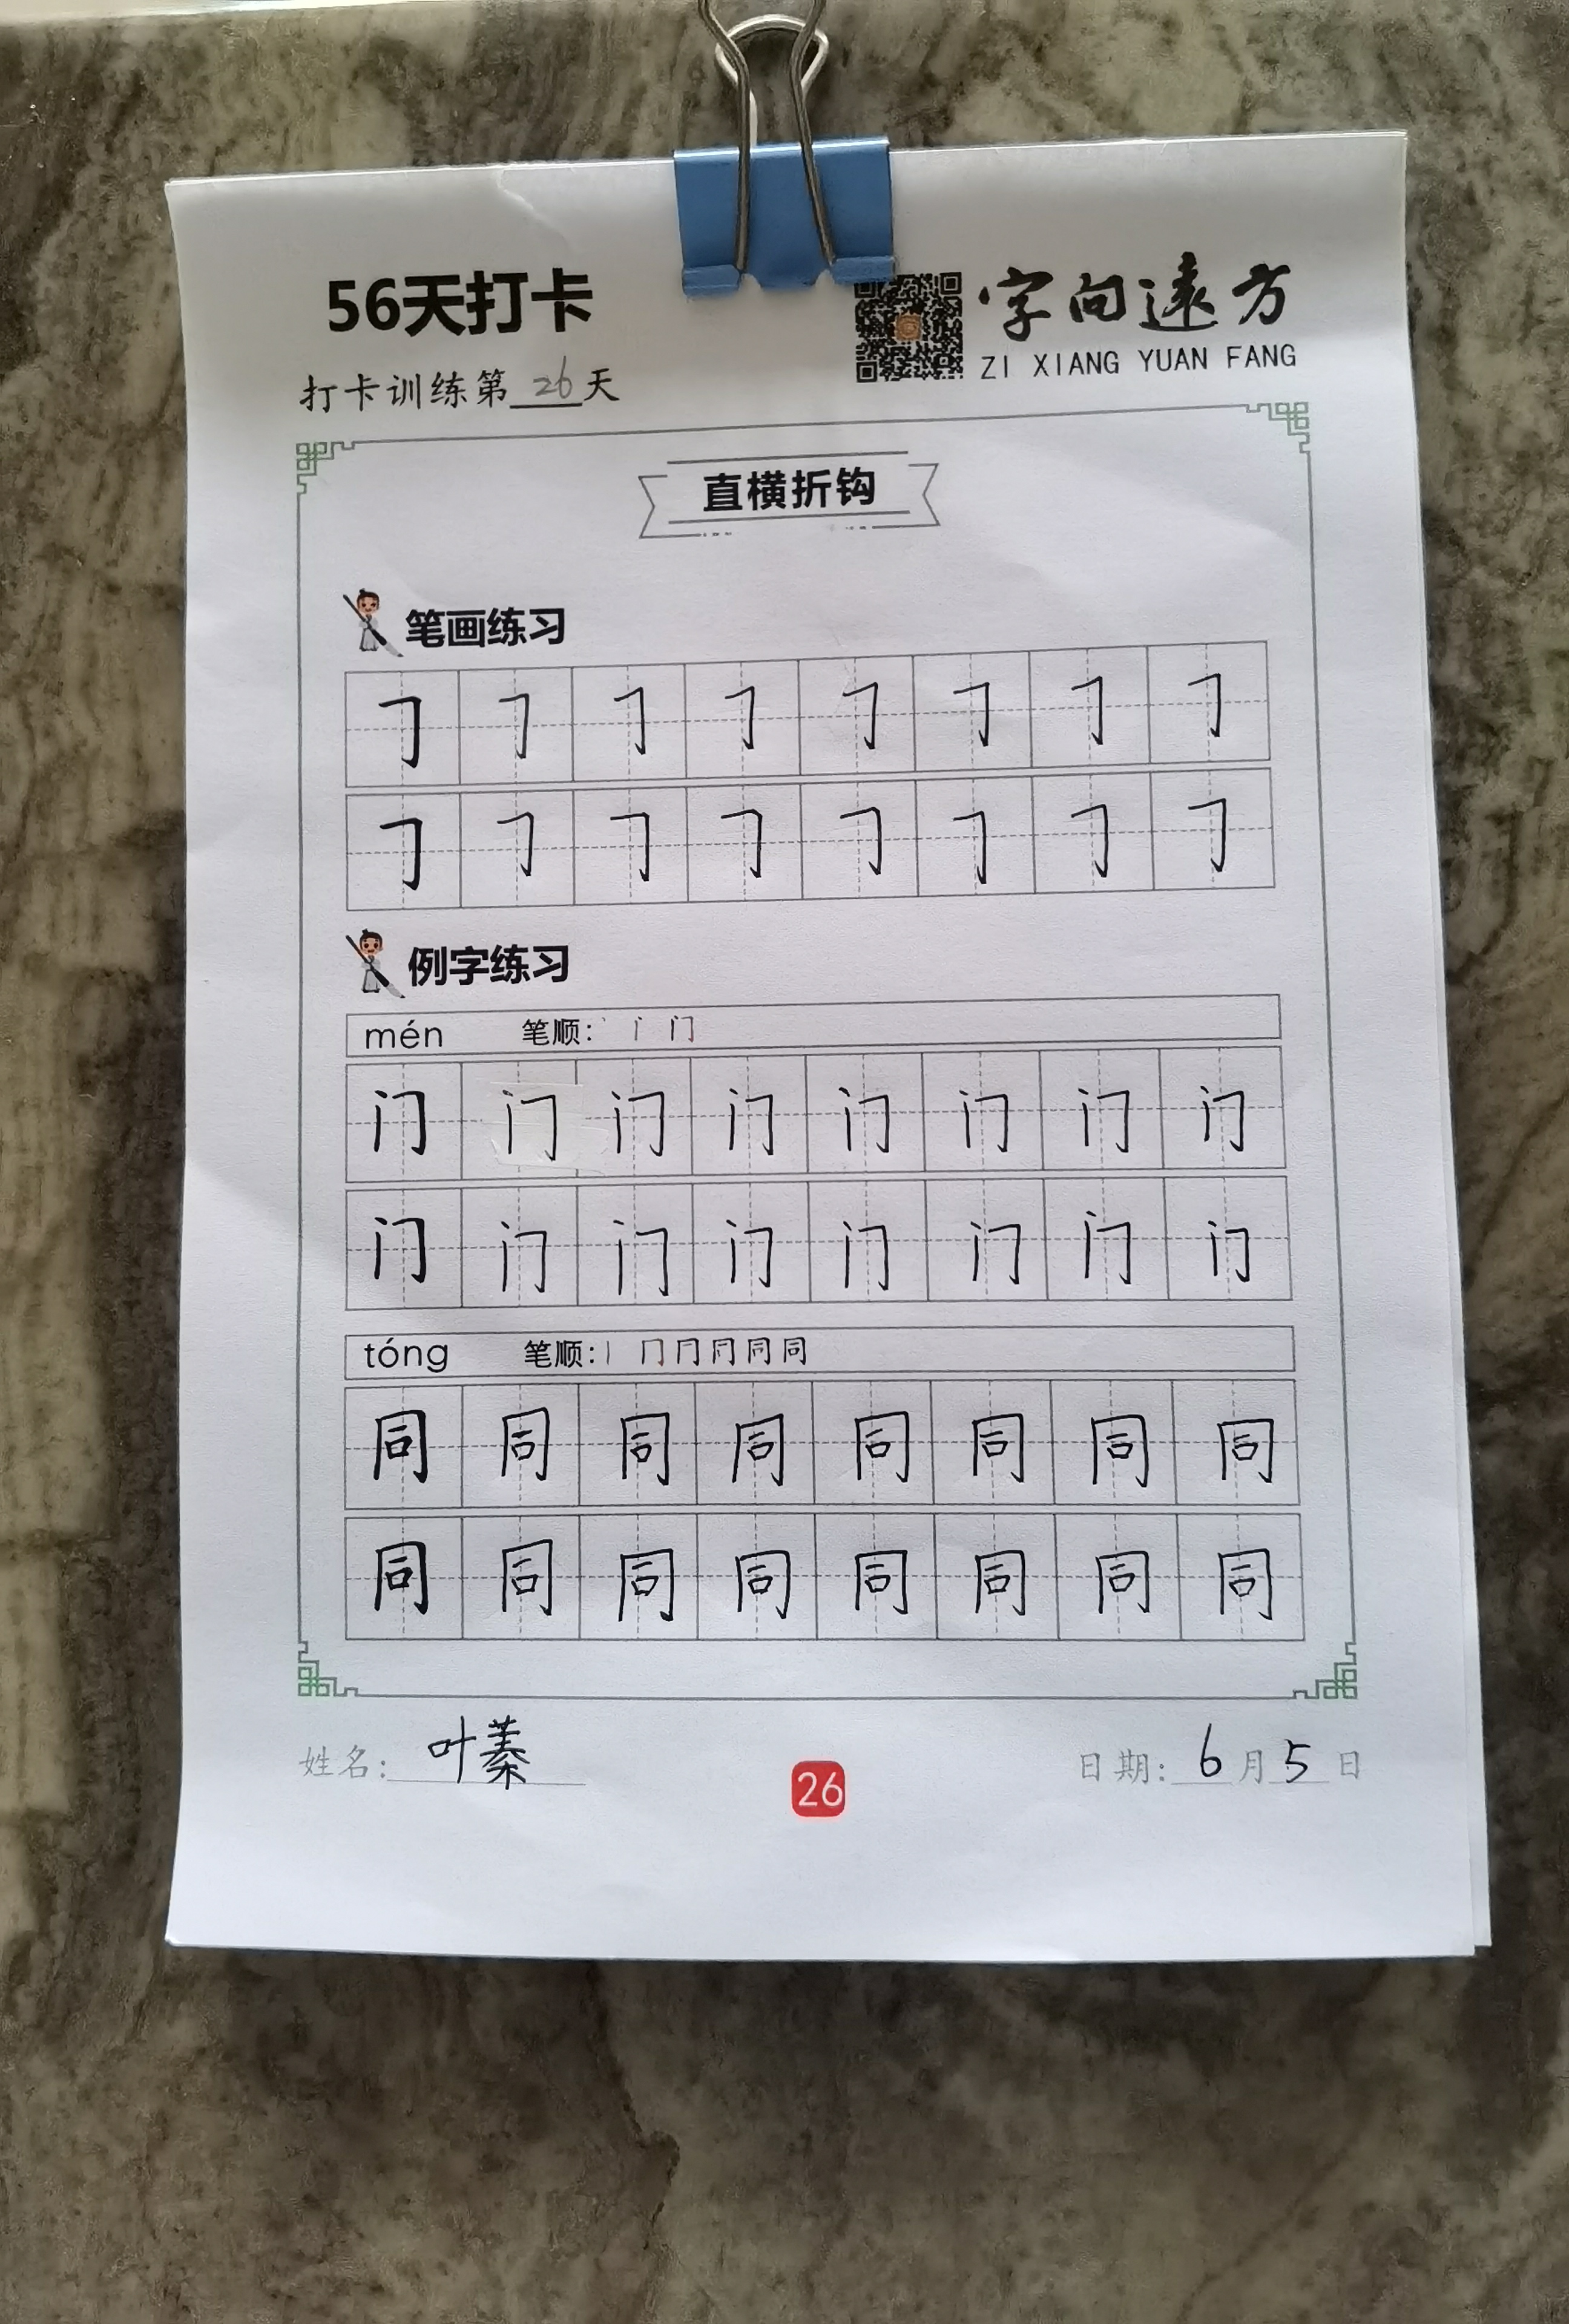 56天打卡
字向遠方
ZI XIANG YUAN FANG
打卡训练第26天
直横折钩
笔画练习
㇆ ㇆ ㇆ ㇆ ㇆ ㇆ ㇆ ㇆
㇆ ㇆ ㇆ ㇆ ㇆ ㇆ ㇆ ㇆
例字练习
mén 笔顺: 丶 丨 门
门 门 门 门 门 门 门 门
门 门 门 门 门 门 门 门
tóng 笔顺: 丨 冂 同 同
同 同 同 同 同 同 同 同
同 同 同 同 同 同 同 同
姓名: 叶蓁
26
日期: 6月5日